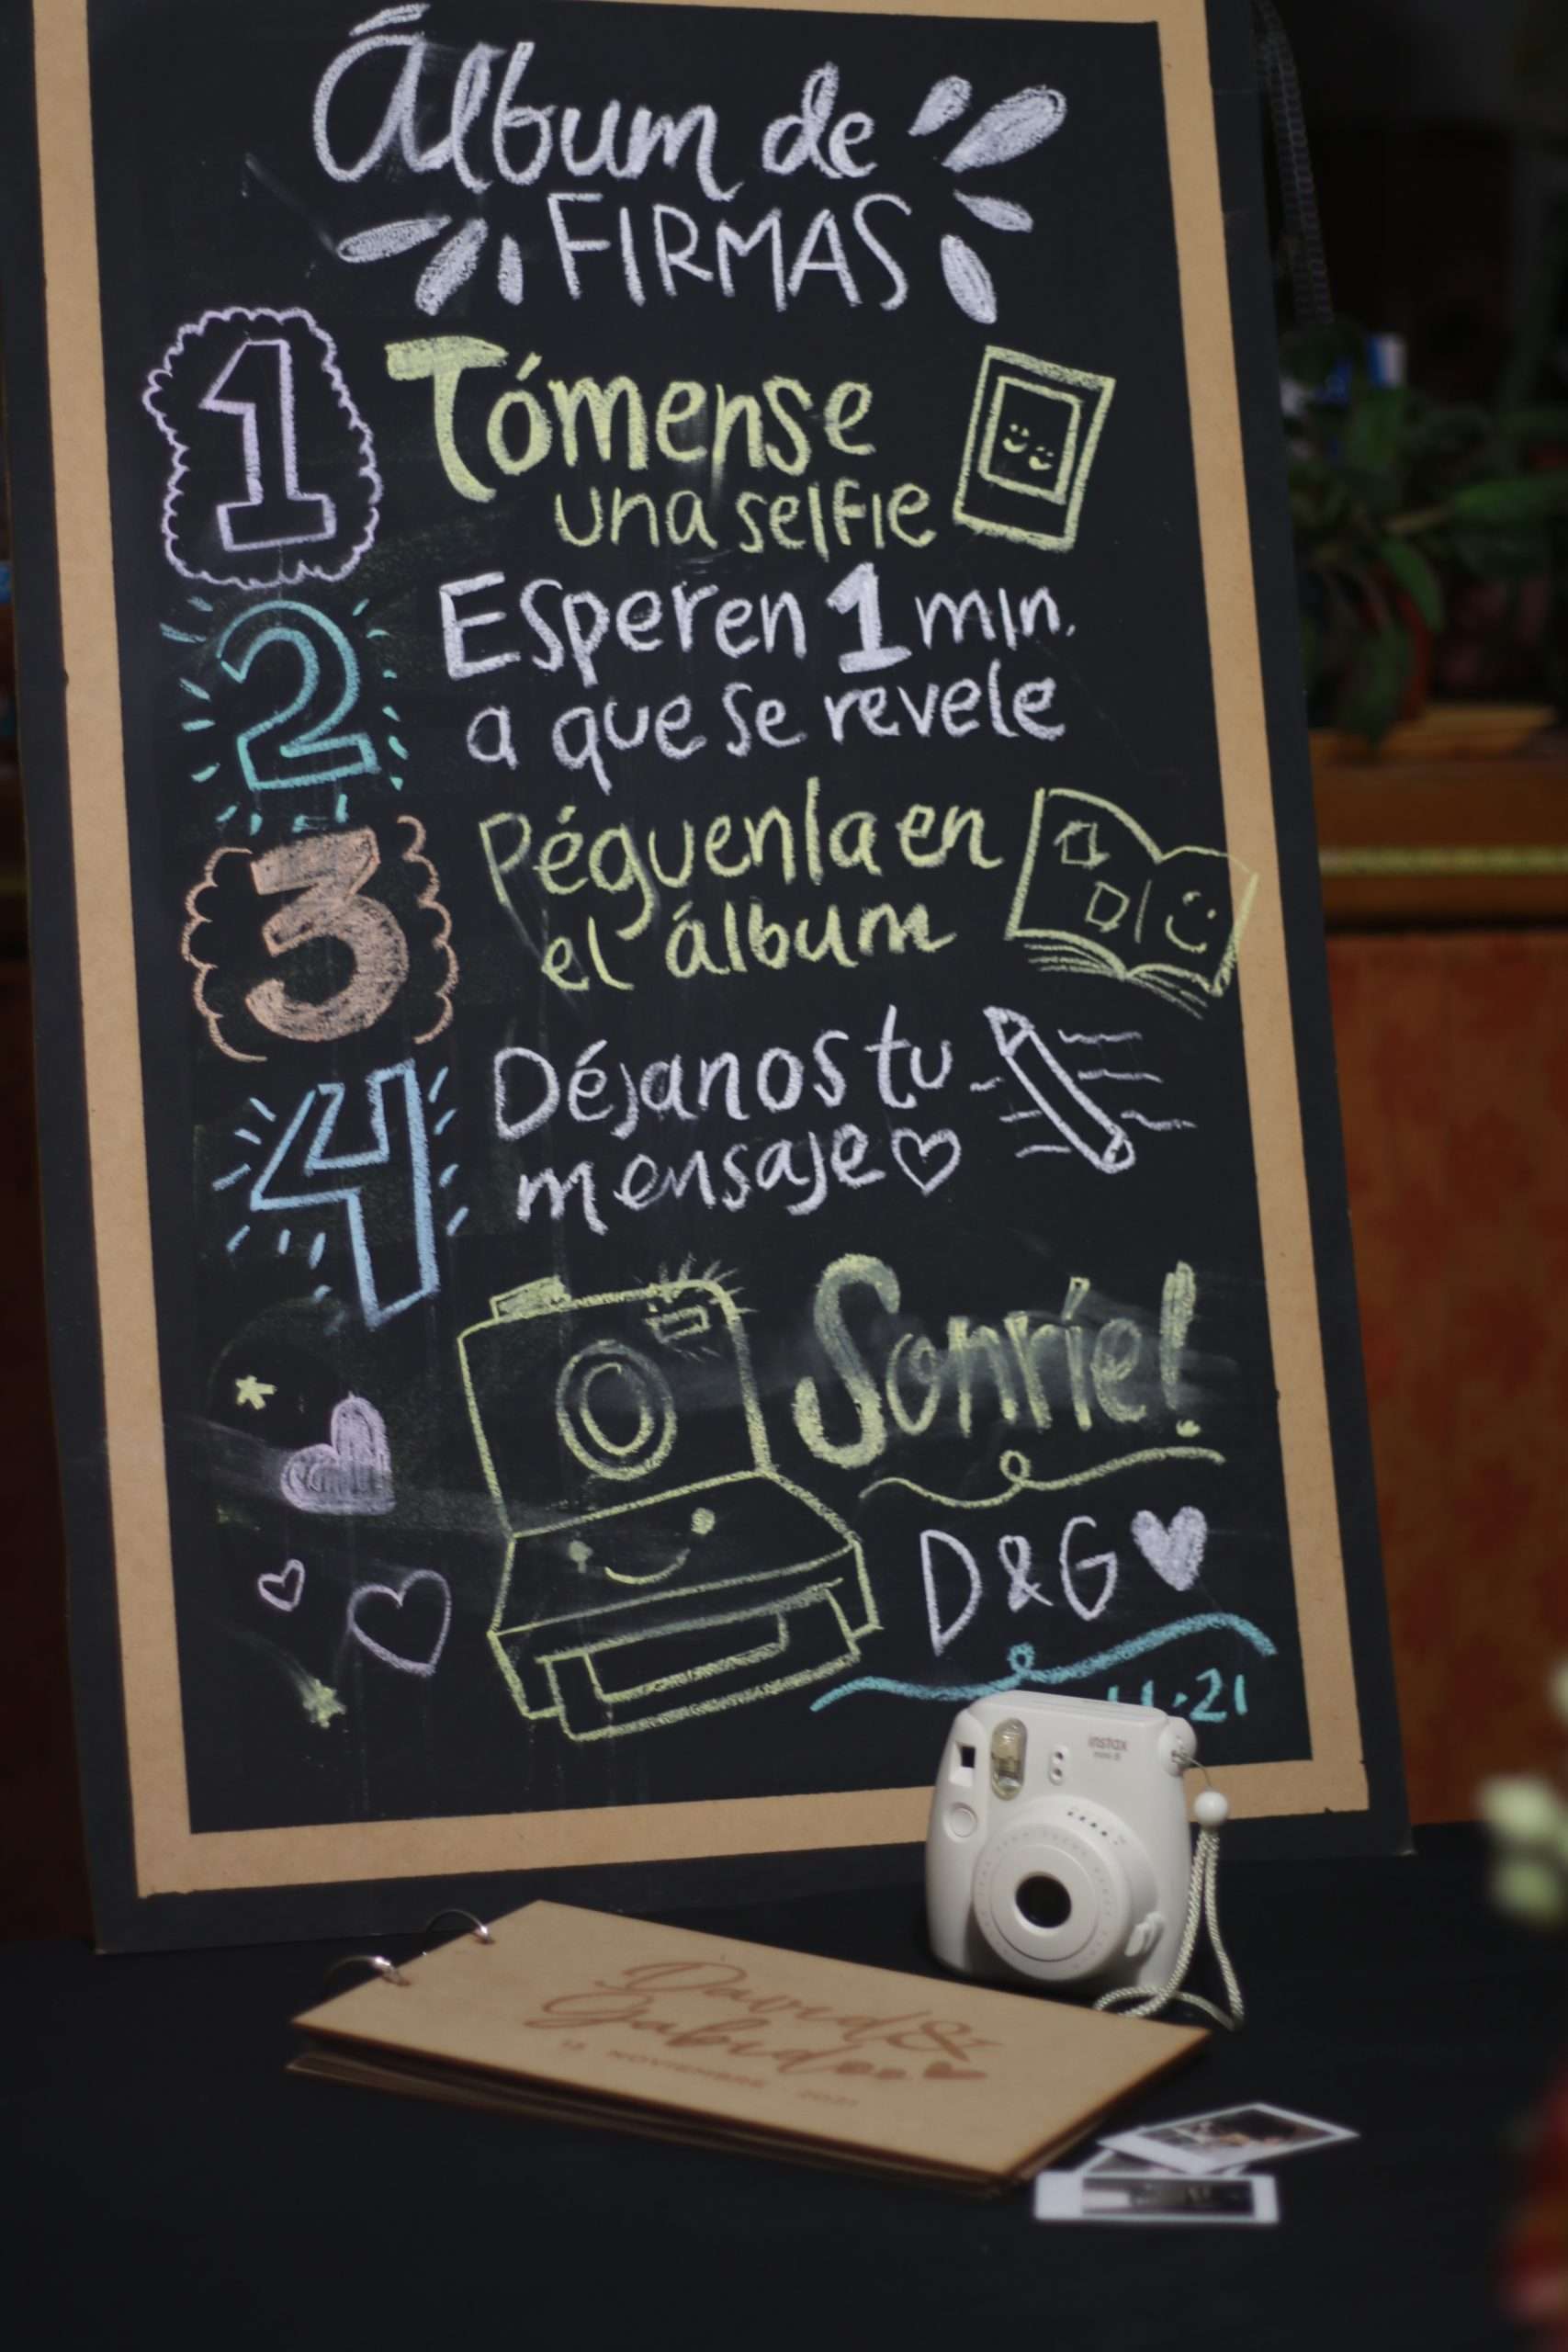 Álbum de
FIRMAS
1 Tómense
una selfie
2 Esperen 1 min.
a que se revele
3 Péguenla en
el álbum
4 Déjanos tu
mensaje
Sonríe!
D&G
11.21
instax
David &
NOVIEMBRE 2021